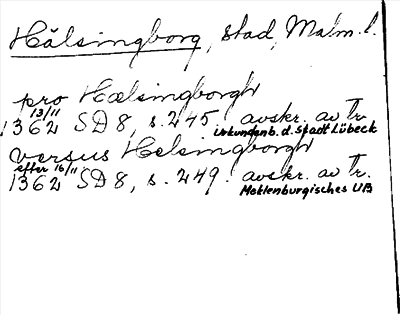 Hälsingborg, stad, Malm. l.
pro Hælsingborgh
13/11
1362 SD 8, s. 245. avskr. av Tr.
Urkundenb. d. Stadt Lübeck
versus Helsingborgh
efter 16/11
1362 SD 8, s. 249. avskr. av Tr.
Meklenburgisches UB